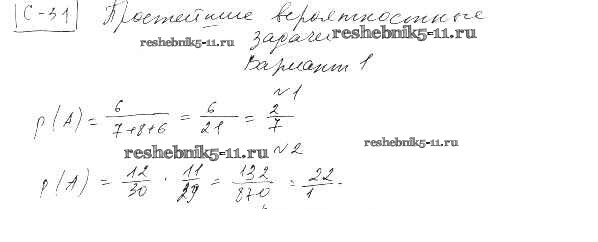 С-31 Простейшие вероятностные
reshebnik5-11.ru задачи reshebnik5-11.ru
Вариант 1
№1
p(A) = 6/(7+8+6) = 6/21 = 2/7
reshebnik5-11.ru
reshebnik5-11.ru №2
p(A) = 12/30 · 11/29 = 132/870 = 22/1